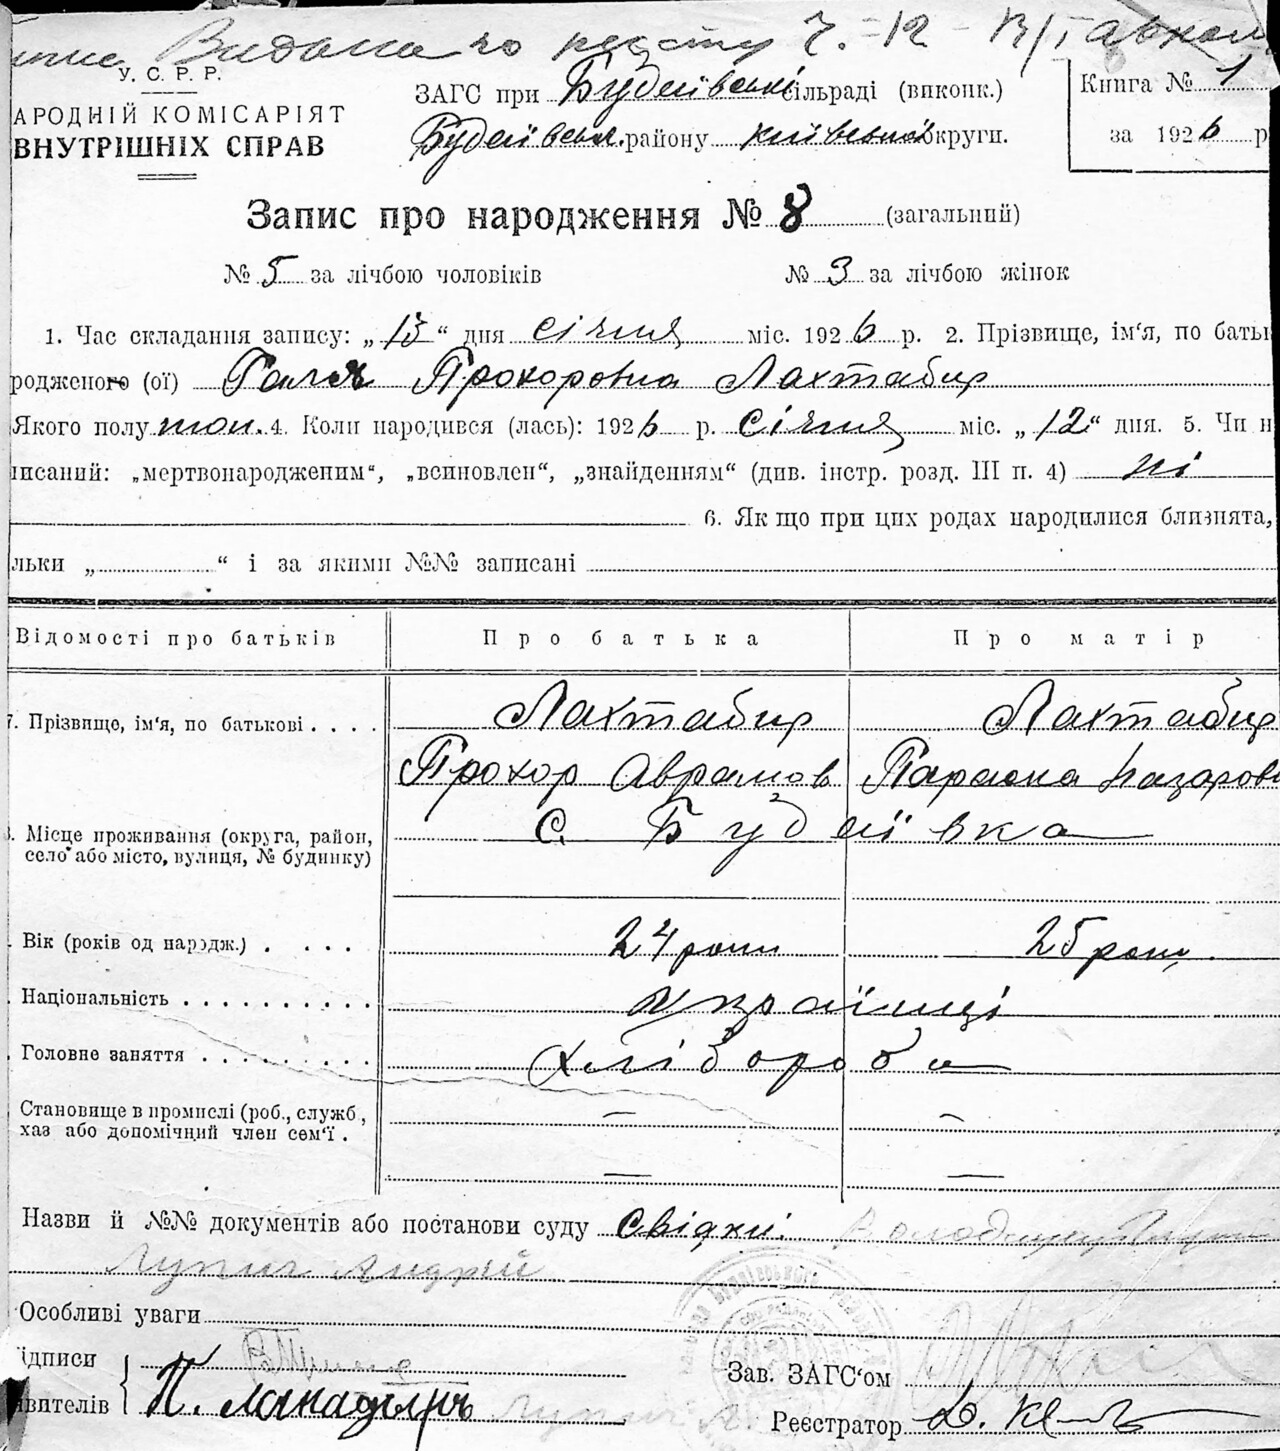 Видана
У. С. Р. Р.
АРОДНІЙ КОМІСАРІЯТ
ВНУТРІШНІХ СПРАВ
ЗАГС при Будаївські сільраді (виконк.)
Будаївськ. району київської округи.
Книга № 1
за 1926 р
Запис про народження № 8 (загальний)
№ 5 за лічбою чоловіків № 3 за лічбою жінок
1. Час складання запису: „13“ дня січня міс. 1926 р. 2. Прізвище, ім‘я, по батьк
родженого (ої) Галя Прохоровна Лахтабир
Якого полу жон. 4. Коли народився (лась): 1926 р. січня міс. „12“ дня. 5. Чи н
писаний: „мертвонародженим“, „всиновлен“, „знайденням“ (див. інстр. розд. III п. 4) ні
6. Як що при цих родах народилися близнята,
льки „ “ і за якими №№ записані
Відомості про батьків Про батька Про матір
7. Прізвище, ім‘я, по батькові . . . . Лахтабир Лахтабир
Прохор Аврамов Параска Назаров
. Місце проживання (округа, район, с. Будаївка
село або місто, вулиця, № будинку)
. Вік (років од народж.) . . . . 24 роки 25 роки
. Національність . . . . . . . . . . українці
. Головне заняття . . . . . . . . . хлібороба
Становище в промислі (роб., служб., — —
хаз або допомічний член сем‘ї . — —
Назви й №№ документів або постанови суду Свідки.
Лупич Андрій
Особливі уваги
ідписи
явителів П. Лахтадыръ
Зав. ЗАГС‘ом
Реєстратор